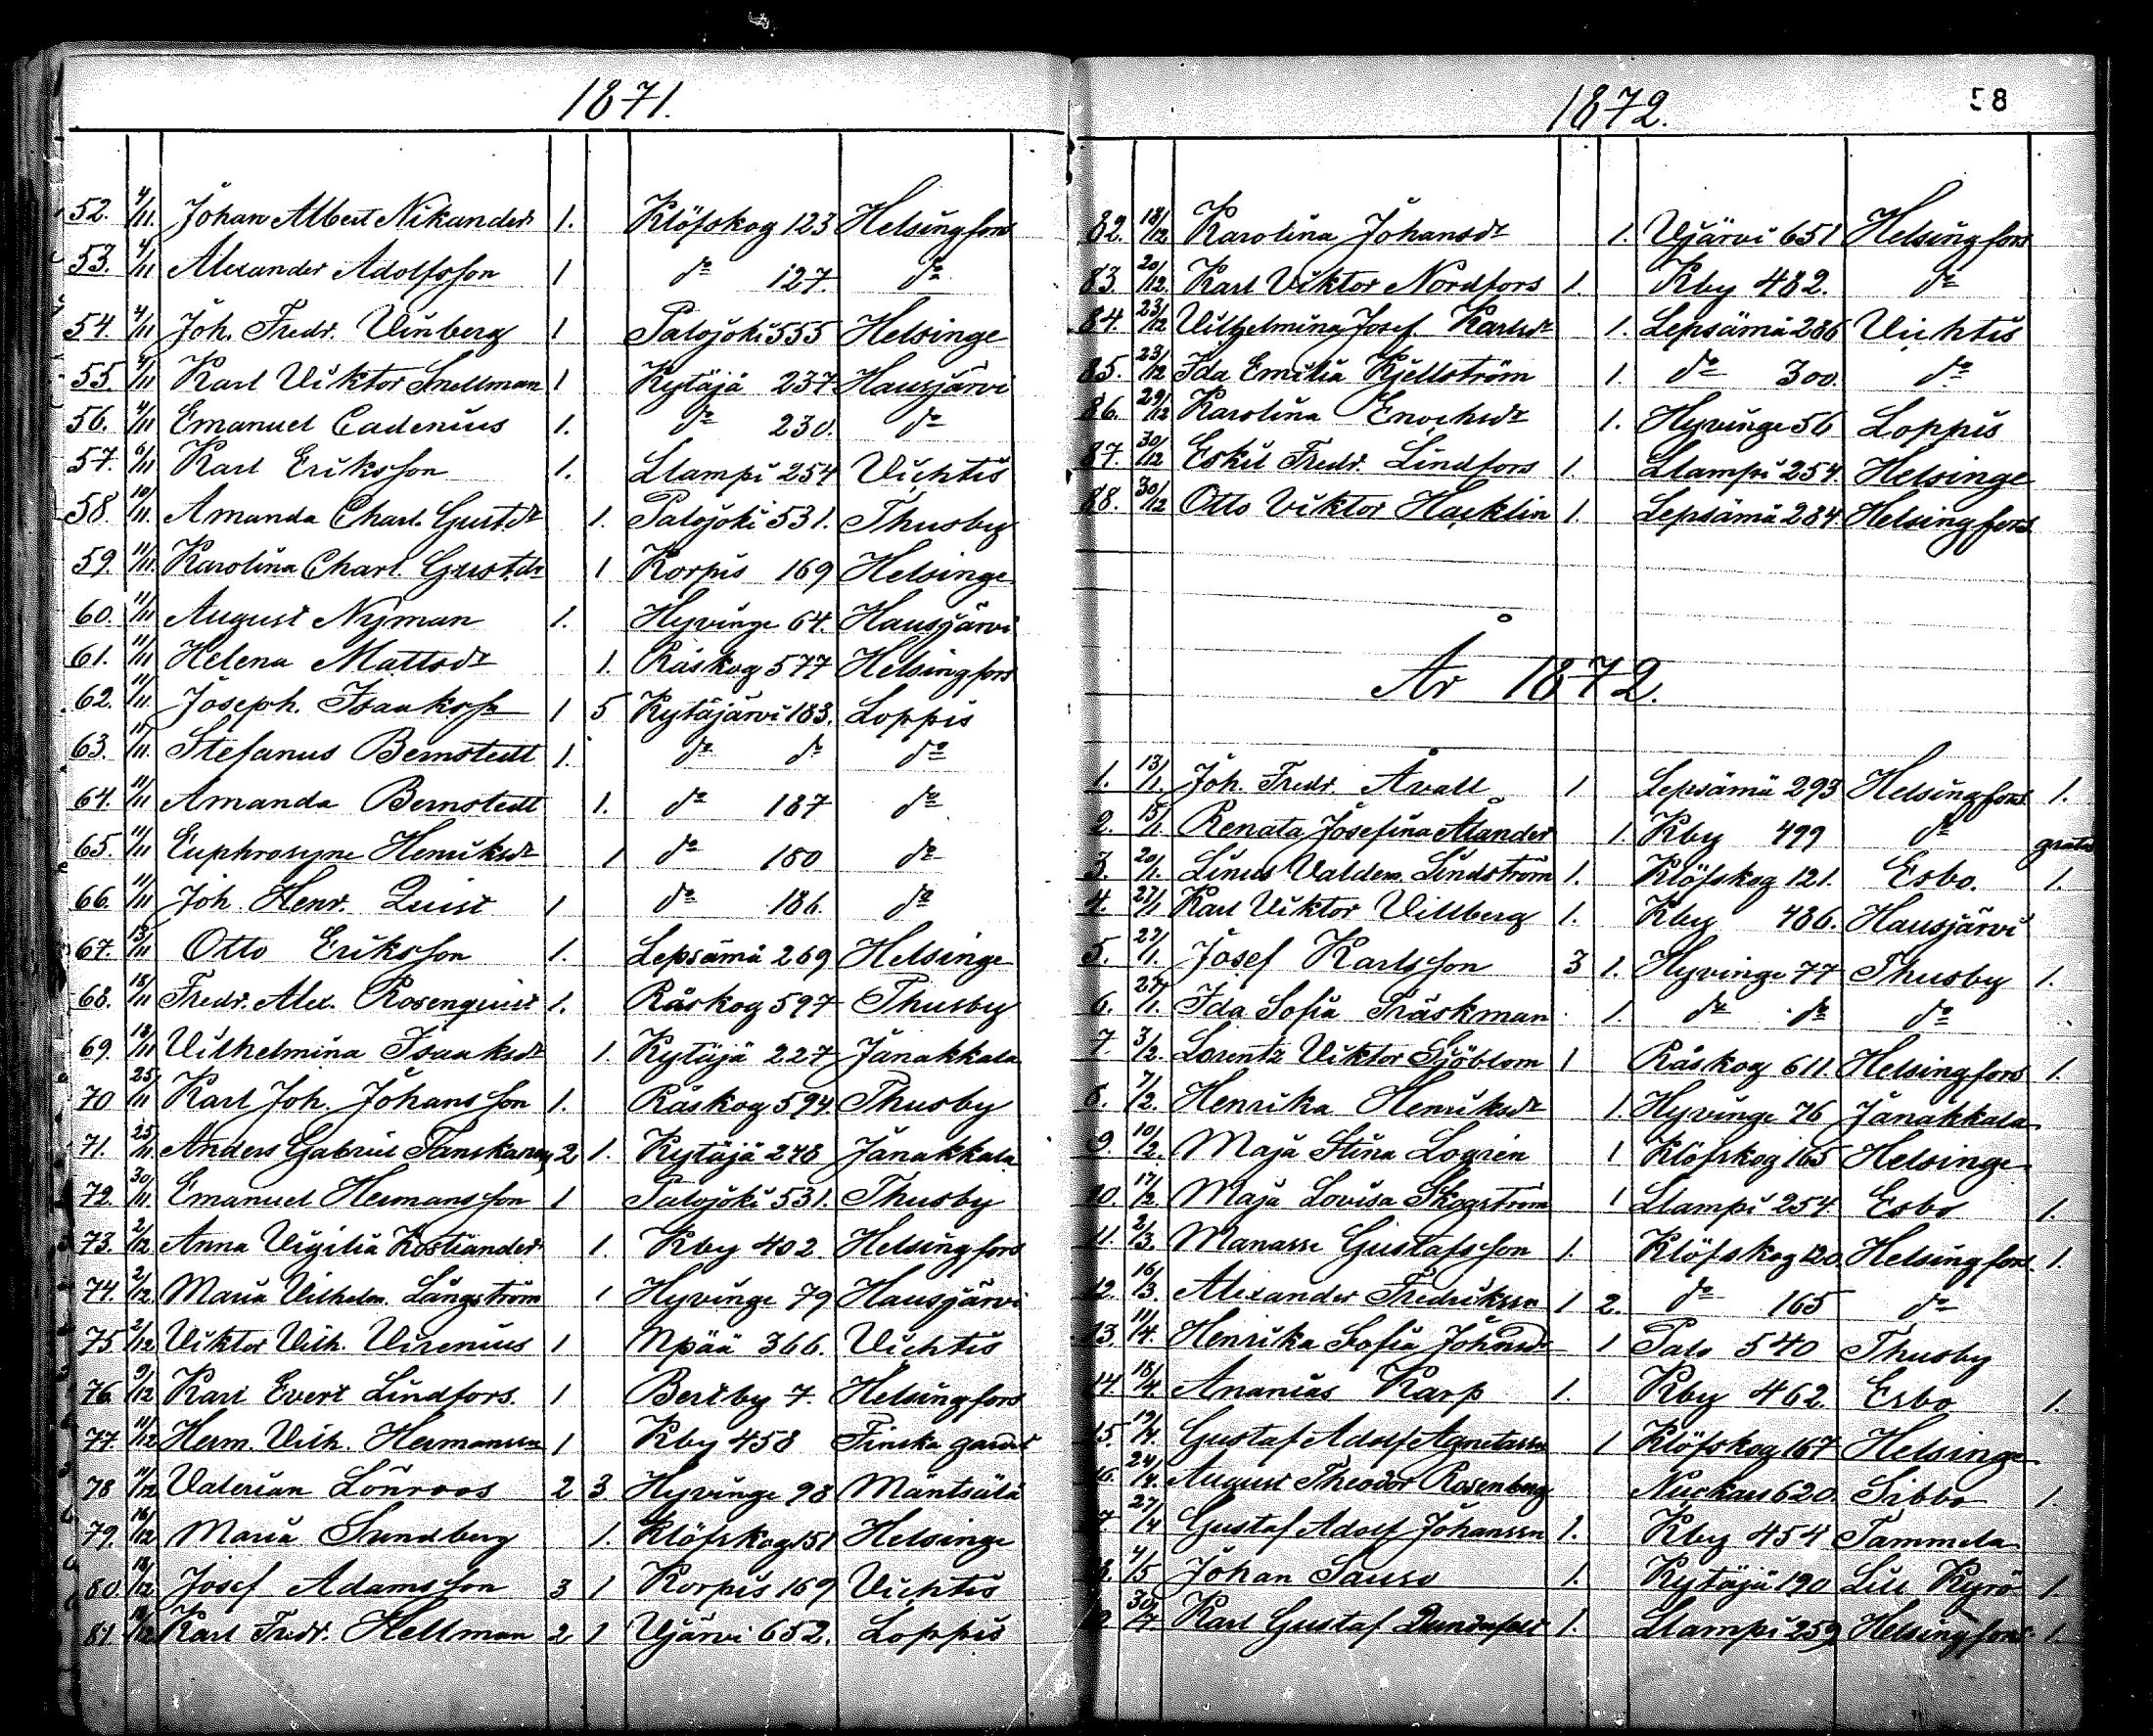 1871.
52. 4/11. Johan Albert Nikander 1. Klöfskog 123 Helsingfors
53. 4/11 Alexander Adolfsson 1 do 127. do
54. 4/11 Joh. Fredr. Vinberg 1 Palojoki 555 Helsinge
55. 4/11 Karl Viktor Snellman 1 Kytäjä 237 Hausjärvi
56. 4/11 Emanuel Cadenius 1. do 230. do
57. 6/11 Karl Eriksson 1. Llampi 254 Vichtis
58. 10/11. Amanda Charl. Gustdr 1. Palojoki 531. Thusby
59. 11/11. Karolina Charl. Gustdr 1 Korpis 169 Helsinge
60. 11/11 August Nyman 1. Hyvinge 64. Hausjärvi
61. 11/11 Helena Mattsdr 1. Råskog 577 Helsingfors
62. 11/11. Joseph. Isaakss 1 5 Kytäjärvi 183. Loppis
63. 11/11. Stefanus Bernstedt 1. do do do
64. 11/11 Amanda Bernstedt 1. do 187 do
65. 11/11 Euphrosyne Henriksdr 1 do 180 do
66. 11/11 Joh. Henr. Quist 1 do 186. do
67. 13/11 Otto Eriksson 1. Lepsämä 269 Helsinge
68. 18/11 Fredr. Alex. Rosenquist 1. Råskog 597 Thusby
69. 18/11 Vilhelmina Isaaksdr 1. Kytäjä 227 Janakkala
70 25/11 Karl Joh. Johansson 1. Råskog 594. Thusby
71. 25/11 Anders Gabriel Tanskanen 2 1. Kytäjä 248 Janakkala
72. 30/11. Emanuel Hermansson 1 Palojoki 531. Thusby
73. 2/12 Anna Vigilia Kostiander 1. Kby 402. Helsingfors
74. 2/12 Maria Vilhelm. Långström 1 Hyvinge 79 Hausjärvi
75. 2/12 Viktor Vilh. Virenius 1 Npää 366. Vichtis
76. 9/12 Karl Evert Lindfors. 1 Bertby 7. Helsingfors
77. 11/12 Herm. Vilh. Hermanssn 1 Kby 458 Finska gardet
78 11/12 Valerian Lönroos 2 3. Hyvinge 98 Mäntsälä
79. 16/12 Maria Sundberg 1. Klöfskog 151 Helsinge
80. 18/12. Josef Adamsson 3 1 Korpis 169 Vichtis
81. 18/12 Karl Fredr. Hellman 2 1 Yjärvi 652. Loppis
1872. 58
82. 18/12 Karolina Johansdr 1. Yjärvi 651 Helsingfors
83 20/12. Karl Viktor Nordfors 1. Kby 482. do
84. 23/12 Vilhelmina Josef. Karlsdr 1. Lepsämä 286 Vichtis
85. 23/12 Ida Emilia Kjellström 1. do 300. do
86. 29/12 Karolina Enochsdr 1. Hyvinge 56 Loppis
87. 30/12 Eskil Fredr. Lindfors 1. Llampi 254. Helsinge
88. 30/12 Otto Viktor Hacklin 1. Lepsämä 284 Helsingfors
År 1872.
1. 13/1. Joh. Fredr. Åvall 1 Lepsämä 293 Helsingfors 1.
2. 15/1. Renata Josefina Ålander 1. Kby 499 do gratis
3. 20/1. Linus Valdem. Lindström 1. Klöfskog 121. Esbo. 1.
4. 27/1 Karl Viktor Villberg 1. Kby 486. Hausjärvi
5. 27/1. Josef Karlsson 3 1. Hyvinge 77 Thusby 1.
6. 27/1. Ida Sofia Träskman 1. do do do
7. 3/2. Lorentz Viktor Sjöblom 1 Råskog 611. Helsingfors 1.
8. 7/2. Henrika Henriksdr 1. Hyvinge 76 Janakkala
9. 10/2. Maja Stina Logrén 1 Klöfskog 165 Helsinge
10. 17/2. Maja Lovisa Skogström 1 Llampi 254. Esbo 1.
11. 2/3. Manasse Gustafsson 1. Klöfskog 120. Helsingfors 1.
12 16/3. Alexander Fredrikssn 1 2. do 165 do
13. 11/4. Henrika Sofia Johnsdr 1 Palo 540 Thusby
14. 18/4. Ananias Karp 1. Kby 462. Esbo 1.
15. 19/4. Gustaf Adolf 1 Klöfskog 167 Helsinge
16. 24/4. August Theodor Rosenberg Nuckars 620. Sibbo 1.
17 27/4 Gustaf Adolf Johanssn 1. Kby 454 Tammela
18. 4/5 Johan Sauso 1. Kytäjä 190 Lill Kyrö 1.
30/7. Karl Gustaf 1. Llampi 259 Helsingfors 1.